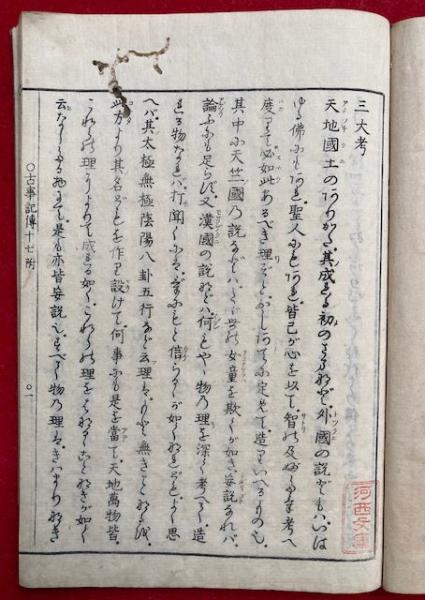 三大考
天地國土のありかた其成れる初のさまなど外國の説どもハいは
ゆる佛にもあれ聖人にもあれ皆己が心を以て智の及ぶかぎり考へ
度りて必如此あるべき理ぞとおしあてに定めて造りいへるもの也
其中に天竺國乃説などハたゞ世の女童を欺くが如き妄説なれバ
論ふにも足らず又漢國の説などハ何ごとも物乃理を深く考へて造
れる物なれバ打聞くにハまことにもと信らるゝが如くなれどもよく思
へバ其太極無極陰陽八卦五行など云理ハもと無きことなるを
此方より其名どもを作り設けて何事にも是を當て天地萬物皆
これらの理によりて成れる如くこれらの理をはなるゝことなきが如く
云なしたる物にて是も亦皆妄説也すべて物乃理ハきハまりなき
○古事記傳十七附
○一
河西文庫